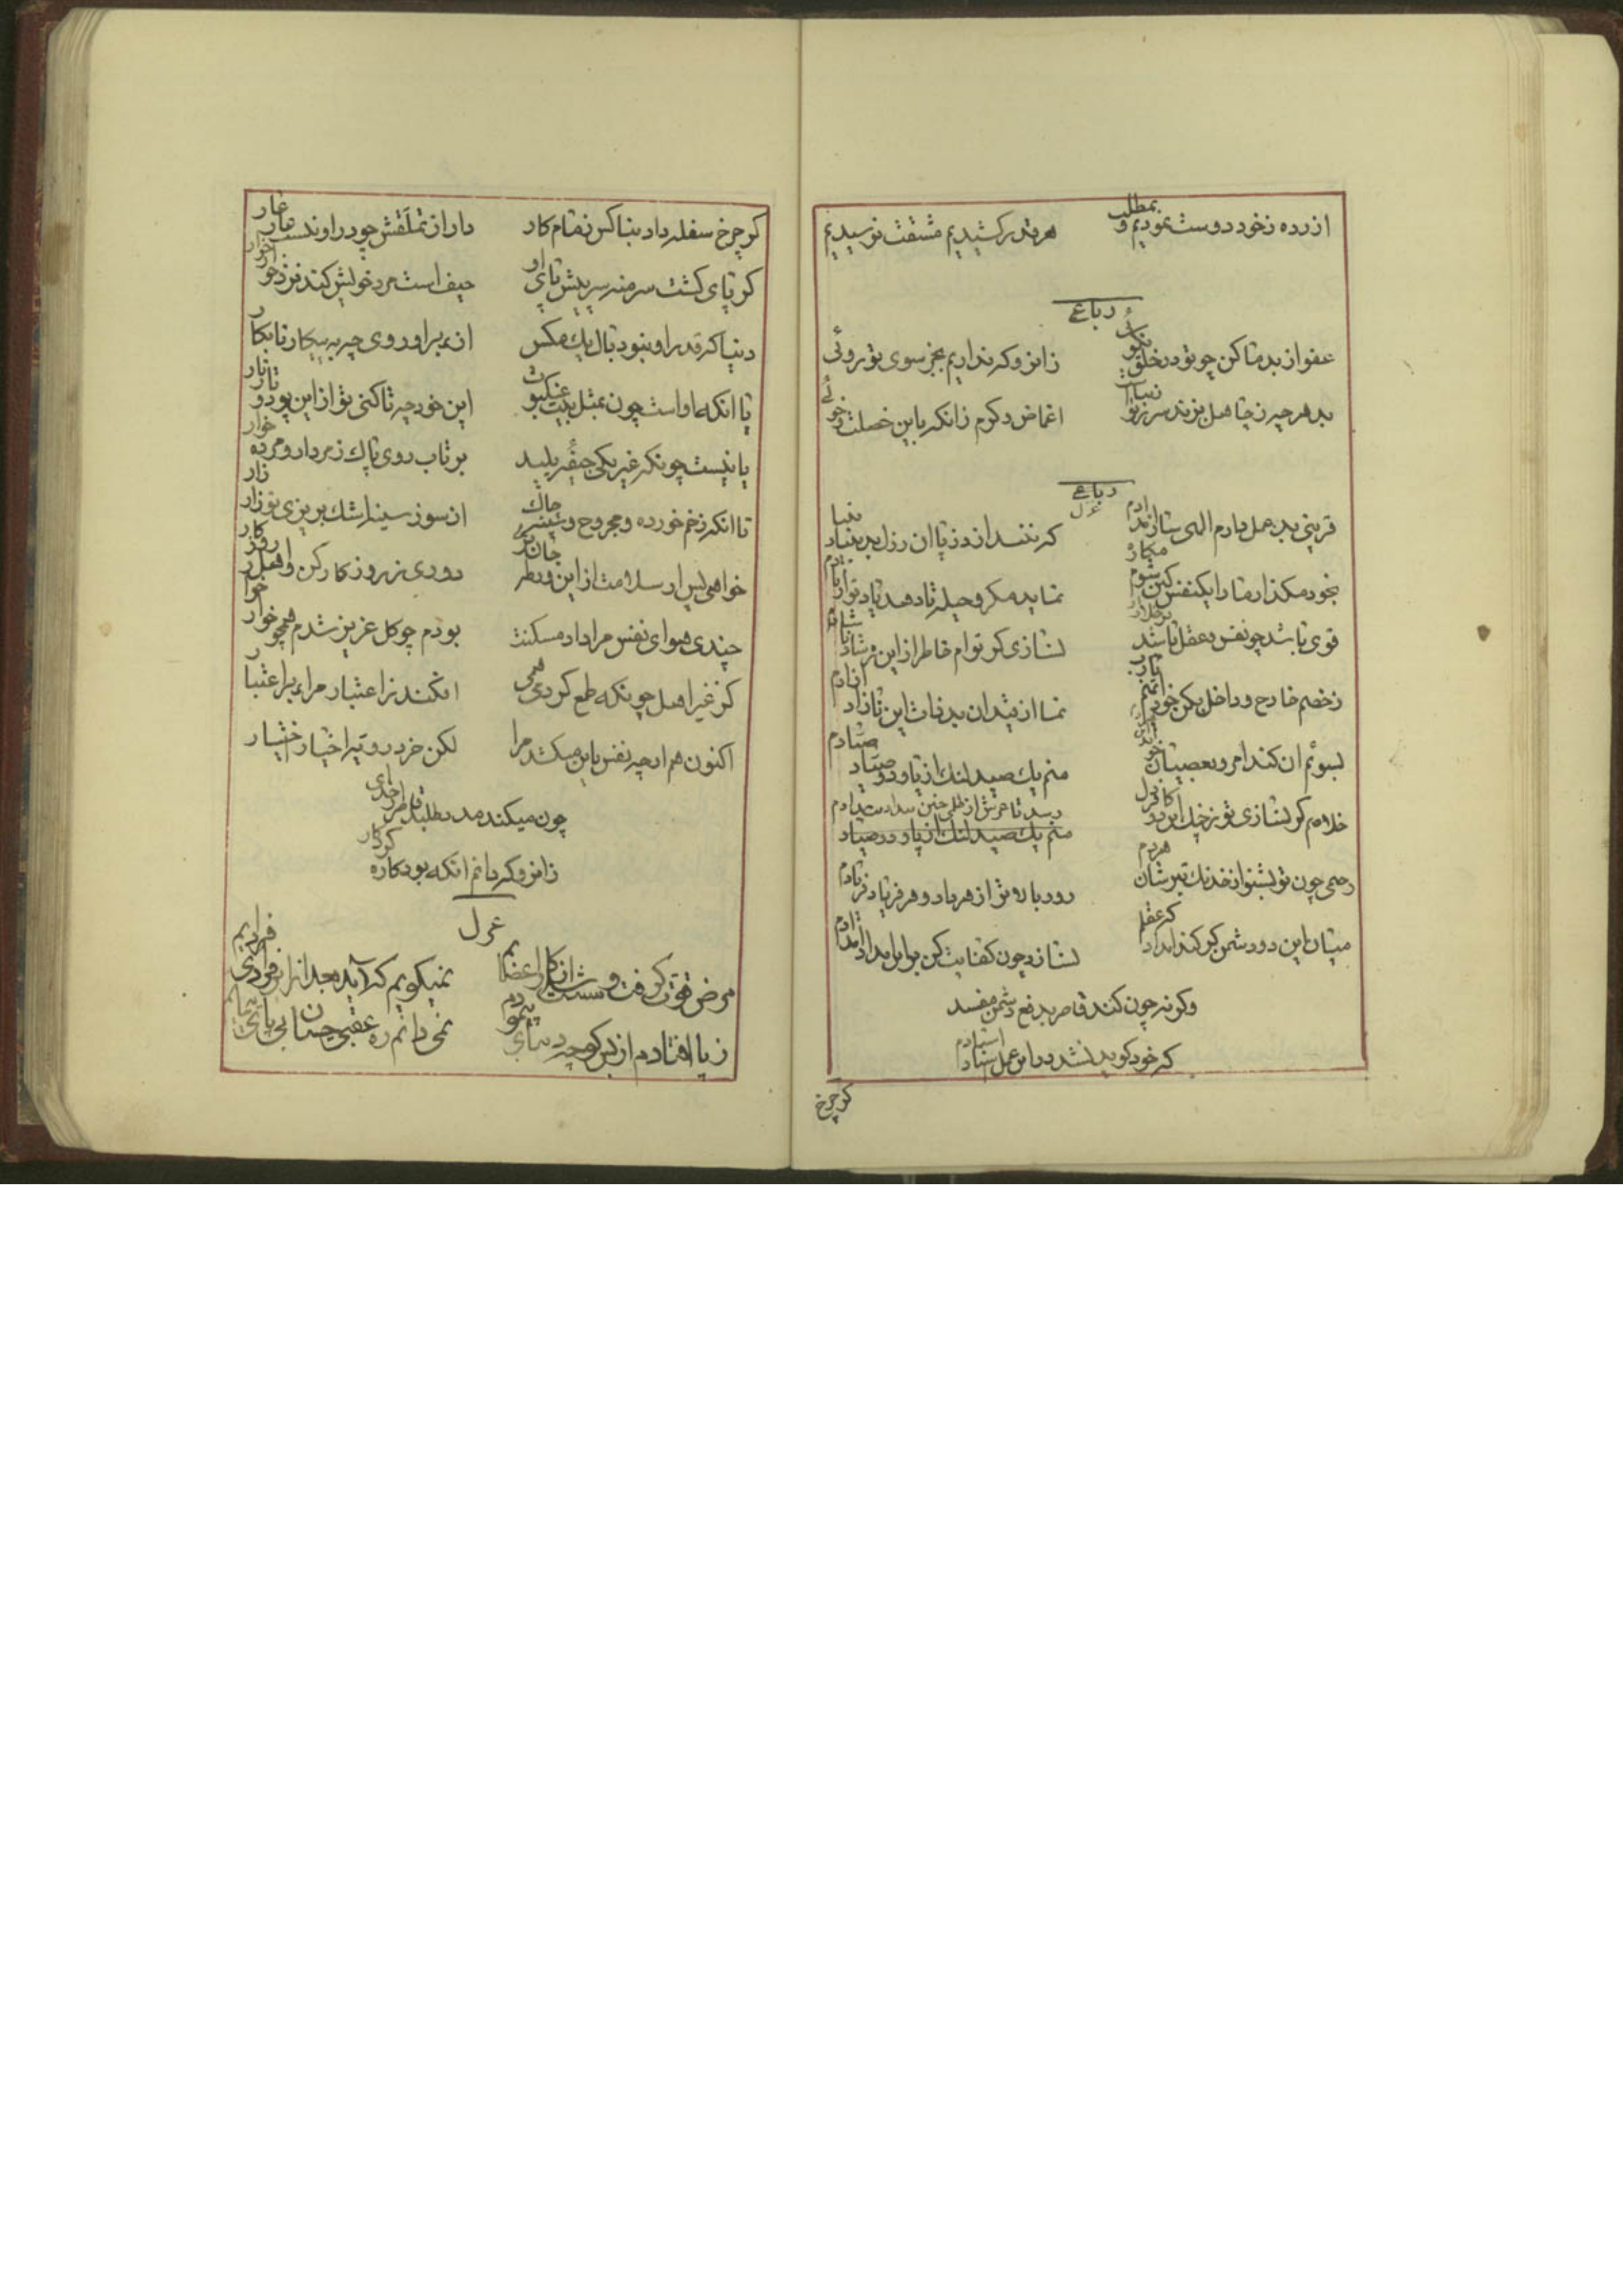 ازرده زخود دوست نمودیم و بمطلب
هرقدر کشیدیم مشقت نرسیدیم
رباعی
عفو از بد ما کن چو تو در خلق نکو
زانرو که نداریم بجز سوی تو روئی
بد هر چه ز جاهل بزند سر ز تو زیباست
اغماض و کرم زانکه باین خصلت و خوئی
رباعی
غزل
قرینی بد عمل دارم الهی ساز
که نفتد از دزیا ان رزل بد بنیادم
بخود مکذار ما را یکنفس کین شوم مکار
نماید مکر و حیله تا دهد یاد تو از یادم
قوی باشد چو نفس و عقل باشد
نسازی کر توام خاطر از این شادم
زخصم خارج و داخل بکن
نما از قید ان بد ذات این ازادم
لسوئم ان کند امر و بعصیان
منم یك صید لنك از پا و دو صیادم
خلاصم کر نسازی تو ز چنك این دو
رسد تا عرش از ظلم چنین بیدادم
منم یك صید لنك از پا و دو صیاد
رحمی چون تو نشنو از خدنك تیر شان هر دم
رود بالا تر از هر باد و هر فریاد فریادم
میان این دو دشمن کر کند امداد که عقل
نسازد چون کفایت کن برایل امدادم
وکرنه چون کنند قاصر بدفع دشمن مفسد
که خود کوید نشد در این عمل استادم
کر چرخ
کر چرخ سفله داد بناکس زمام کار
دار از تملقش چو در اوند عار
کر پای کشت سر منه سر پیش پای او
حیف است مرد خویش کند نزد خوار
دنیا که قدر او نبود بال یك مکس
از بهر او روی چه به پیکار نابکار
یا انکه او است چون بمثل بیت عنکبوت
این خود چه تا کنی تو از این پود و تار
یا نیست چونکه غیر یکی جیفه پلید
بر تاب روی پاك ز مردار و مرده خوار
تا انکه زخم خورده و مجروح و سینه چاك
از سوز سینه اشك بریزی تو زار زار
خواهی پس ار سلامت از این ورطه جان بری
دوری ز روزکار کن و اهل روزکار
چندی هوای نفس مرا داد مسکنت
بودم چو کل عزیز شدم همچو خوار خوار
کز غیر اهل چونکه طمع کردمی همی
افکند ز اعتبار مرا بر اعتبار
اکنون هم ار چه نفس باین میکشد مرا
لکن خرد رو تیر اختیار اختیار
چون میکند مدد بطلبد خاطر از خدای
زانرو که دانم انکه بود کاره کردکار
غزل
مرض قوت کرفت و سست شد از کار اعضایم
نمیکویم که آید بعد از این فردایم
ز پا افتادم از بس کوچه دنیای پیمودم
نمی دانم ره عقبی چسان